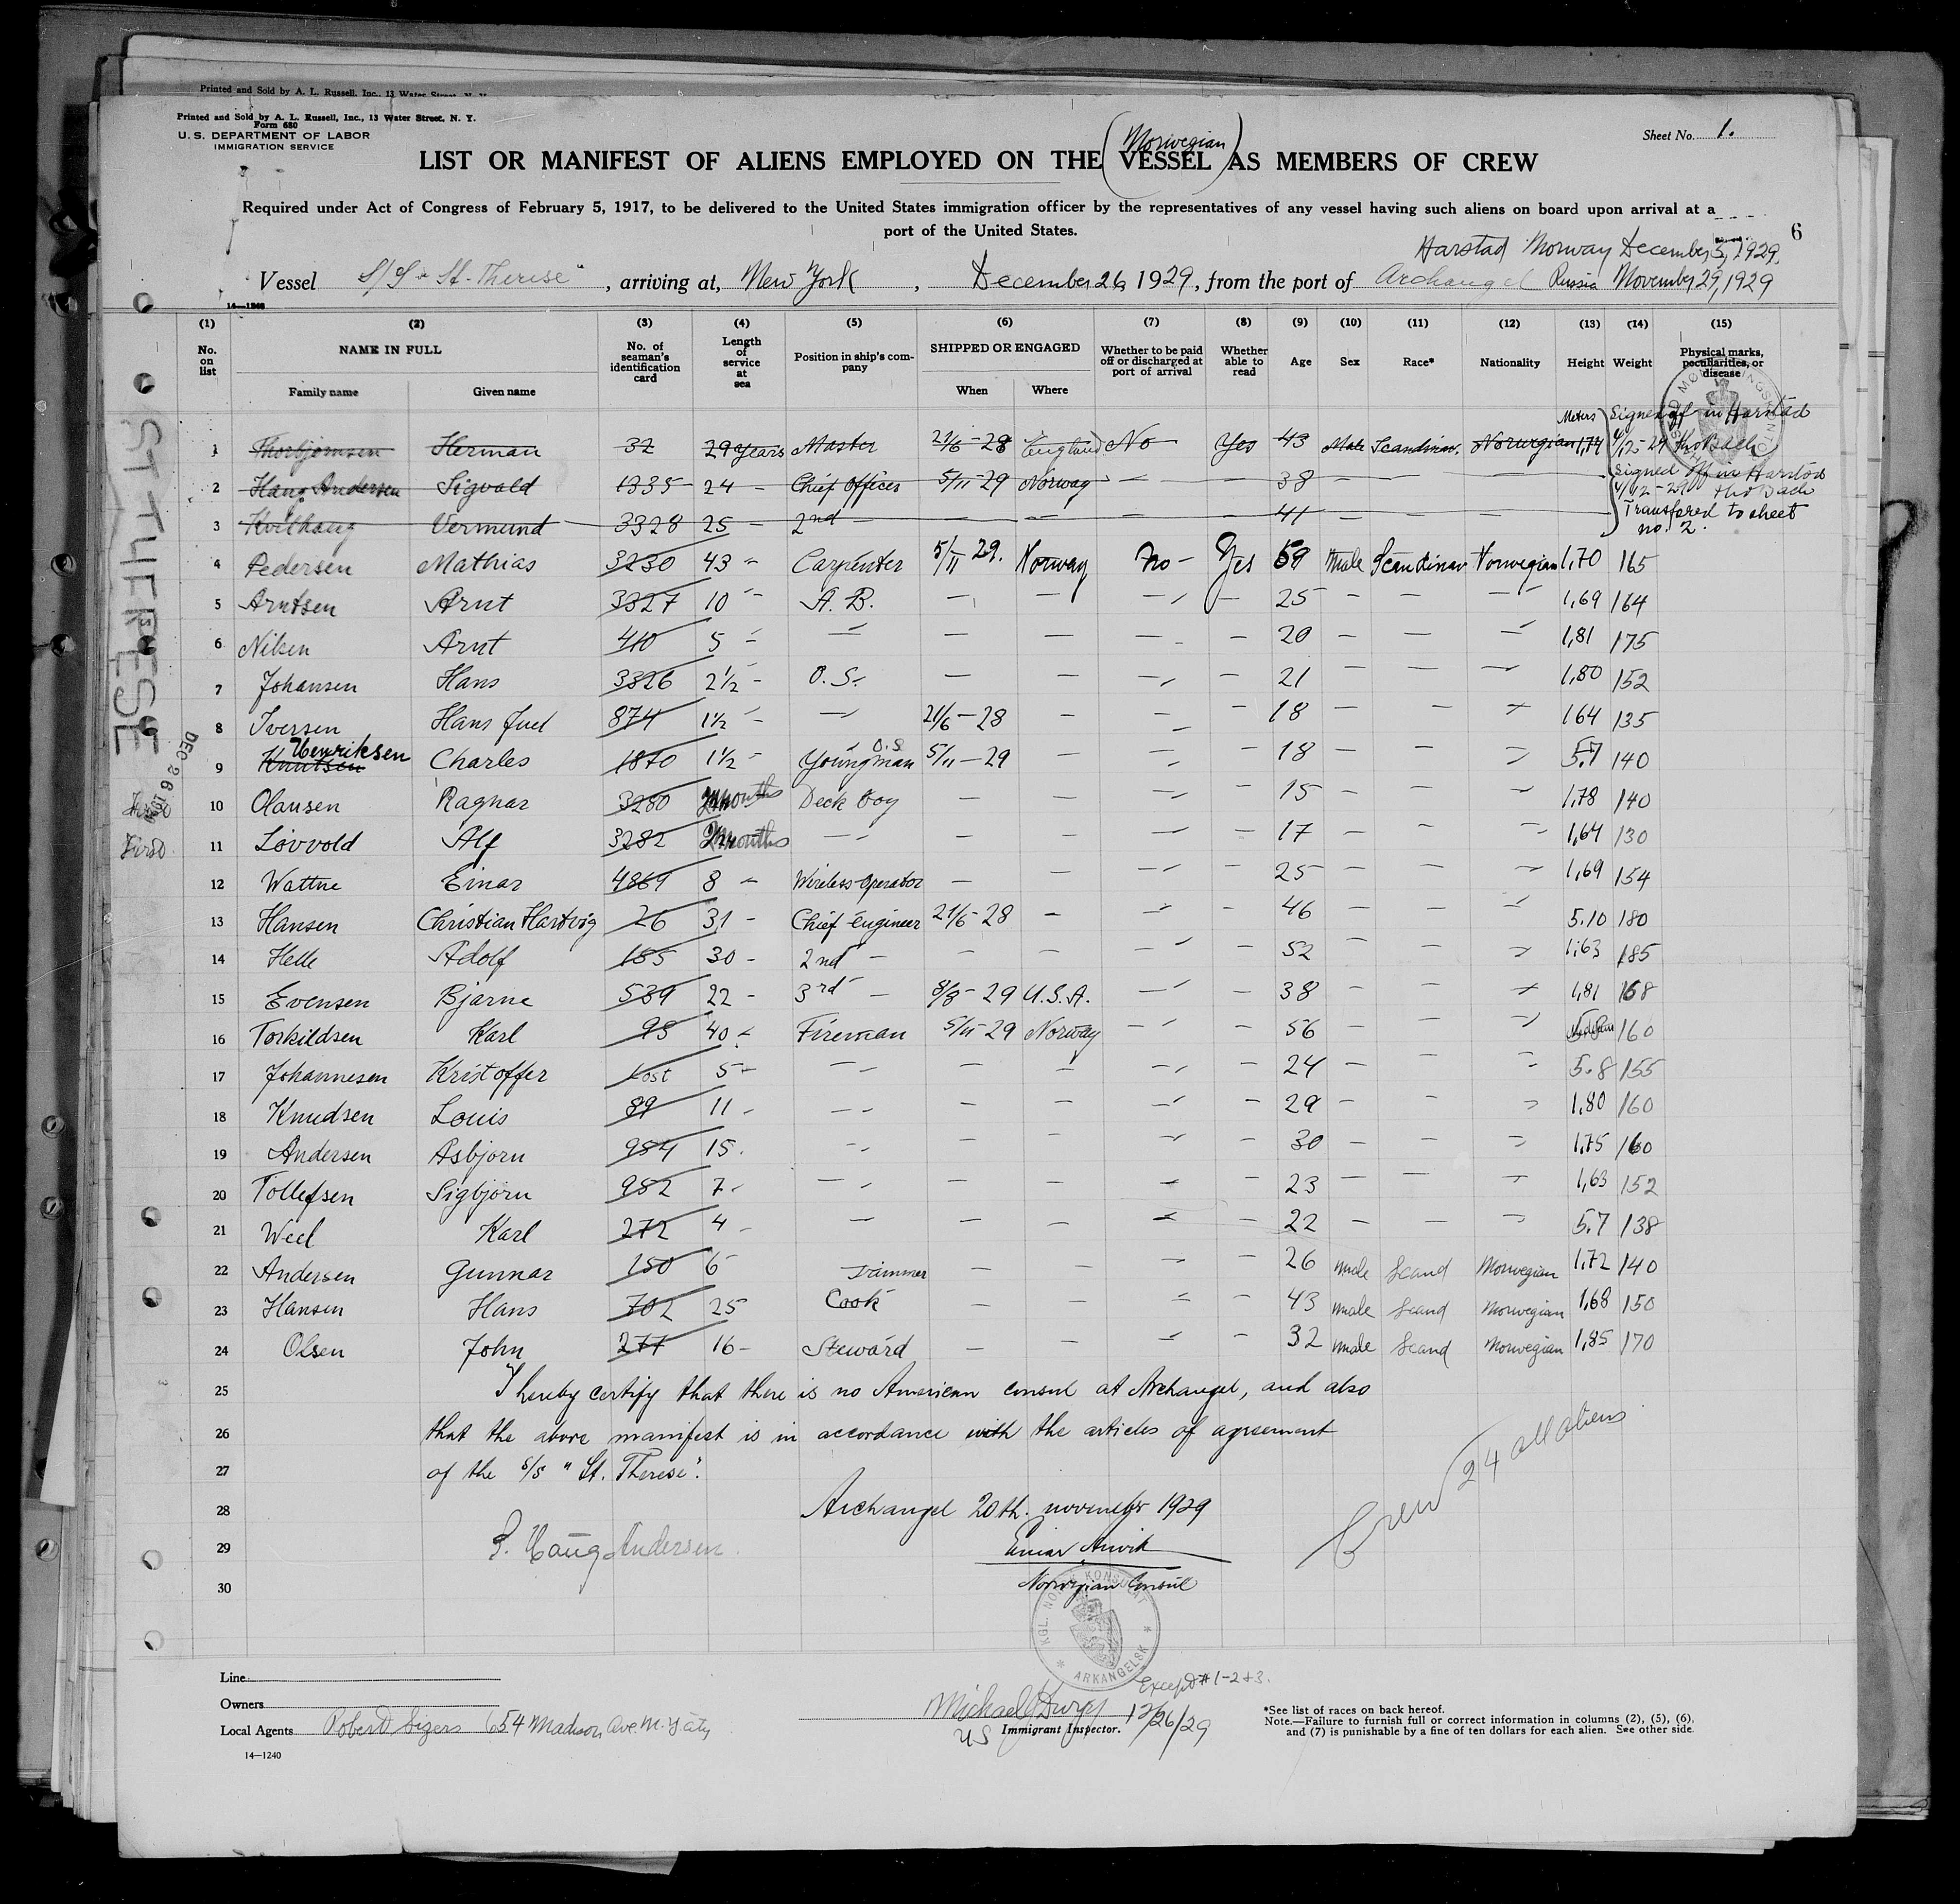 Printed and Sold by A. L. Russell, Inc., 13 Water Street, N. Y.
Printed and Sold by A. L. Russell, Inc., 13 Water Street, N. Y.
Form 680
U. S. DEPARTMENT OF LABOR
IMMIGRATION SERVICE
Sheet No. 1.
(Norwegian)
LIST OR MANIFEST OF ALIENS EMPLOYED ON THE VESSEL AS MEMBERS OF CREW
Required under Act of Congress of February 5, 1917, to be delivered to the United States immigration officer by the representatives of any vessel having such aliens on board upon arrival at a
port of the United States.
6
Harstad Norway December 5, 1929
Vessel S/S "St. Therese", arriving at, New York, December 26, 1929, from the port of Archangel Russia November 29, 1929
14—1240
(1) (2) (3) (4) (5) (6) (7) (8) (9) (10) (11) (12) (13) (14) (15)
No. on list NAME IN FULL Family name Given name No. of seaman's identification card Length of service at sea Position in ship's company SHIPPED OR ENGAGED When Where Whether to be paid off or discharged at port of arrival Whether able to read Age Sex Race* Nationality Height Weight Physical marks, peculiarities, or disease
Meters Signed off in Harstad
1 Thorbjørnsen Herman 32 29 years Master 21/6-28 England No Yes 43 Male Scandinav. Norwegian 1,74 4/12-29
Signed off in Harstad
2 Haug Andersen Sigvald 1335 24 - Chief Officer 5/11-29 Norway — — 38 — — —
4/12-29
3 Kvithaug Vermund 3328 25 - 2nd — — — — — 41 — — — Transfered to sheet
no. 2.
4 Pedersen Mathias 3230 43 - Carpenter 5/11 29. Norway No - Yes 59 Male Scandinav Norwegian 1,70 165
5 Arntsen Arnt 3327 10 - A. B. — — — — 25 — — — 1,69 164
6 Nilsen Arnt 410 5 - — — — — — 20 — — — 1,81 175
7 Johansen Hans 3326 2½ - O. S. — — — — 21 — — — 1,80 152
8 Iversen Hans Juel 874 1½ - — 21/6-28 — — — 18 — — — 1 64 135
Henriksen O.S
9 Knutsen Charles 1870 1½ - Youngman 5/11-29 — — — 18 — — — 5.7 140
10 Olausen Ragnar 3280 months Deck boy — — — — 15 — — — 1,78 140
First
11 Lövvold Alf 3282 months — — — — — 17 — — — 1,64 130
12 Wattne Einar 4869 8 - Wireless-Operator — — — — 25 — — — 1,69 154
13 Hansen Christian Hartvig 26 31 - Chief Engineer 21/6-28 — — — 46 — — — 5.10 180
14 Helle Adolf 185 30 - 2nd — — — — — 52 — — — 1,63 185
15 Evensen Bjarne 539 22 - 3rd — 8/8-29 U.S.A. — — 38 — — — 1,81 168
16 Torkildsen Karl 93 40 - Fireman 5/11-29 Norway — — 56 — — — 160
17 Johannesen Kristoffer Lost 5 - — — — — — 24 — — — 5.8 155
18 Knudsen Louis 89 11 - — — — — — 29 — — — 1,80 160
19 Andersen Asbjorn 984 15. — — — — — 30 — — — 1,75 160
20 Tollefsen Sigbjörn 982 7 - — — — — — 23 — — — 1,63 152
21 Weel Karl 272 4 - — — — — — 22 — — — 5.7 138
22 Andersen Gunnar 150 6 - Trimmer — — — — 26 male Scand Norwegian 1,72 140
23 Hansen Hans 702 25 Cook — — — — 43 male Scand Norwegian 1,68 150
24 Olsen John 277 16 - Steward — — — — 32 male Scand Norwegian 1,85 170
25 I hereby certify that there is no American consul at Archangel, and also
26 that the above manifest is in accordance with the articles of agreement
27 of the S/S "St. Therese".
Crew 24 all aliens
28 Archangel 20th. november 1929
29 S. Haug Andersen Einar Anvik
30 Norwegian Consul
KGL. NORSK KONSULAT
ARKANGELSK
ST THERESE
DEC 26 1929
Line
Owners
Except # 1-2+3.
Local Agents Robert Sizers 654 Madison Ave. N.Y City
Michael 12/26/29
US Immigrant Inspector.
*See list of races on back hereof.
Note.—Failure to furnish full or correct information in columns (2), (5), (6),
and (7) is punishable by a fine of ten dollars for each alien. See other side.
14—1240